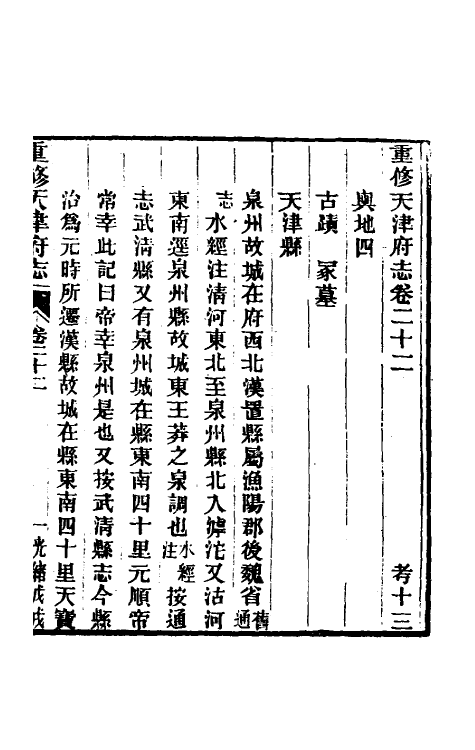 重修天津府志卷二十二 考十三
輿地四
古蹟 冢墓
天津縣
泉州故城在府西北漢置縣屬漁陽郡後魏省舊通
志水經注清河東北至泉州縣北入嫭沱又沽河
東南逕泉州縣故城東王莽之泉調也水經注按通
志武清縣又有泉州城在縣東南四十里元順帝
常幸此記曰帝幸泉州是也又按武清縣志今縣
治爲元時所遷漢縣故城在縣東南四十里天寶
重修天津府志 卷二十二 一 光緒戊戌